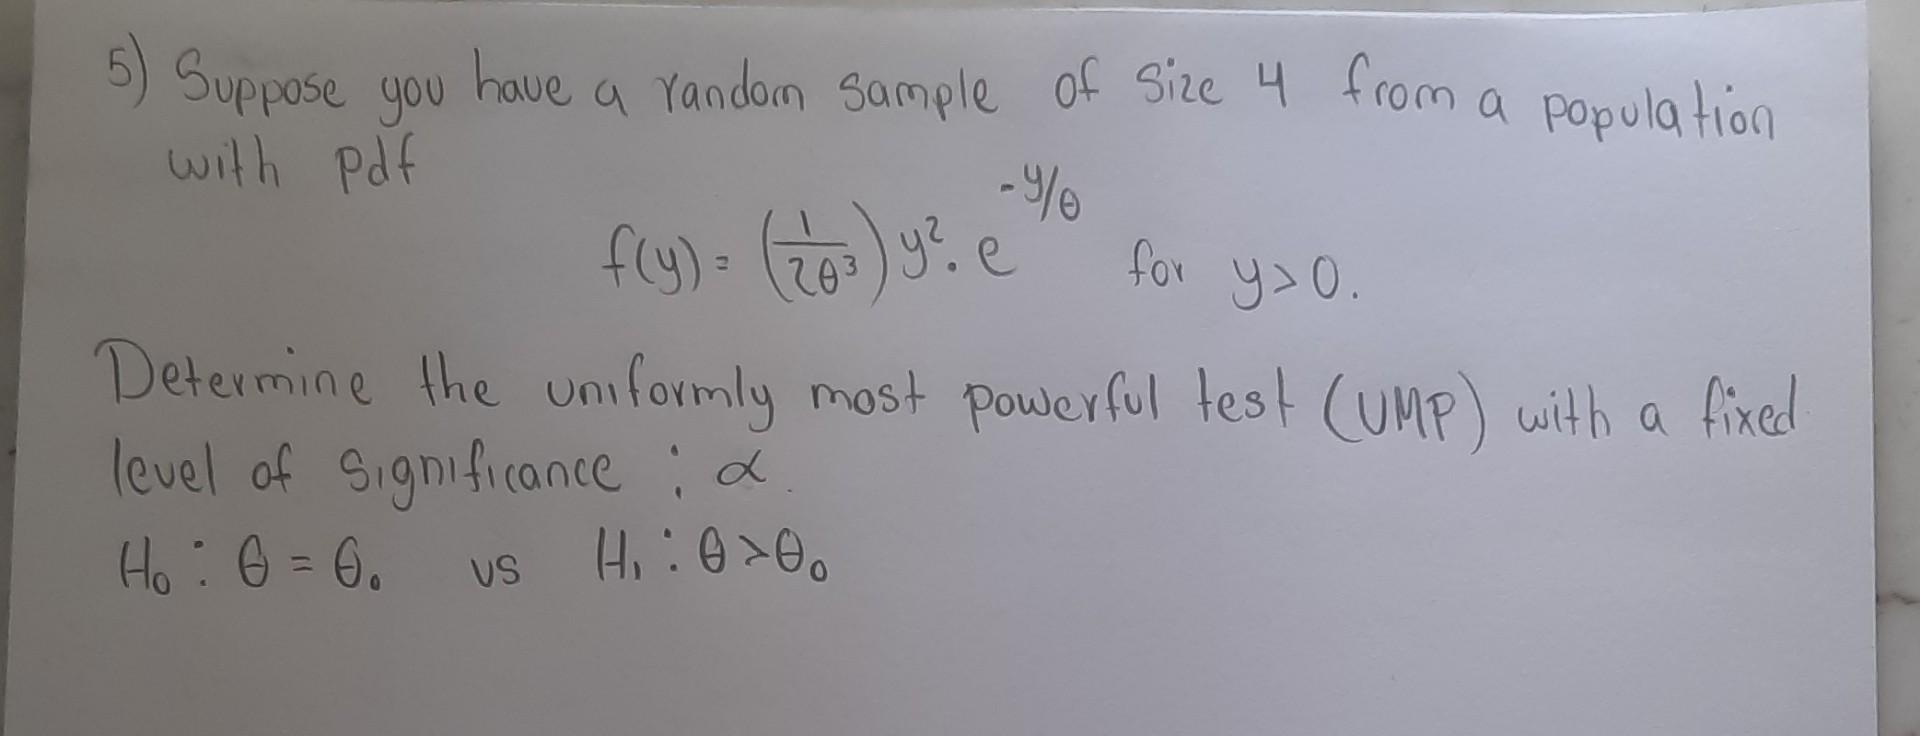 5) Suppose you have a random sample of size 4 from a population
with pdf
f(y) = (1/2θ³) y². e^-y/θ for y>0.
Determine the uniformly most powerful test (UMP) with a fixed
level of significance : α.
H₀ : θ = θ₀ vs H₁ : θ>θ₀